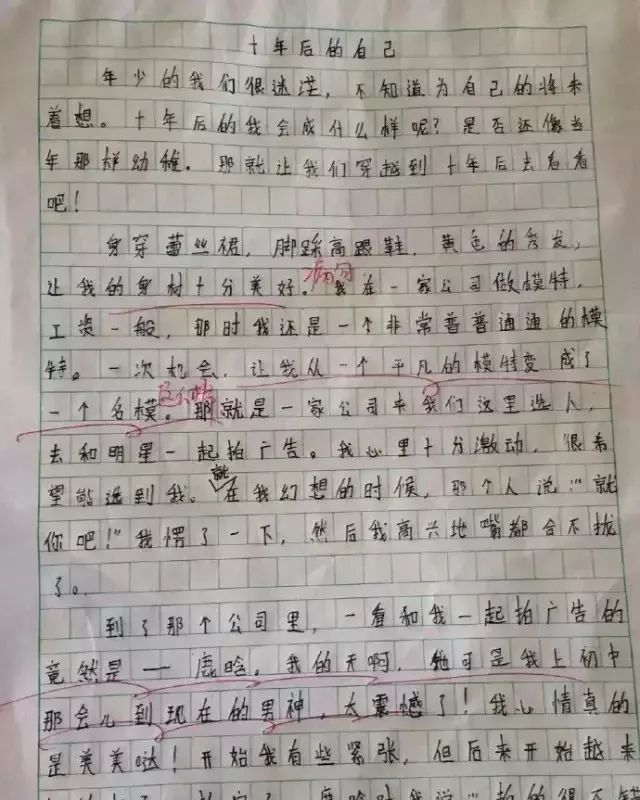 十年后的自己
年少的我们很迷茫，不知道为自己的将来
着想。十年后的我会成什么样呢？是否还像当
年那样幼稚。那就让我们穿越到十年后去看看
吧！
身穿蕾丝裙，脚踩高跟鞋，黄色的秀发，
病句
让我的身材十分美好。我在一家公司做模特，
工资一般，那时我还是一个非常普普通通的模
特。一次机会，让我从一个平凡的模特变成了
一个名模。那就是一家公司来我们这里选人，
去和明星一起拍广告。我心里十分激动，很希
就
望能选到我。在我幻想的时候，那个人说：“就
你吧！”我愣了一下，然后我高兴地嘴都合不拢
了。
到了那个公司里，一看和我一起拍广告的
竟然是——鹿晗，我的天啊，他可是我上初中
那会儿到现在的男神，太震憾了！我心情真的
是美美哒！开始我有些紧张，但后来开始越来
鹿晗对我说：“拍的很不错